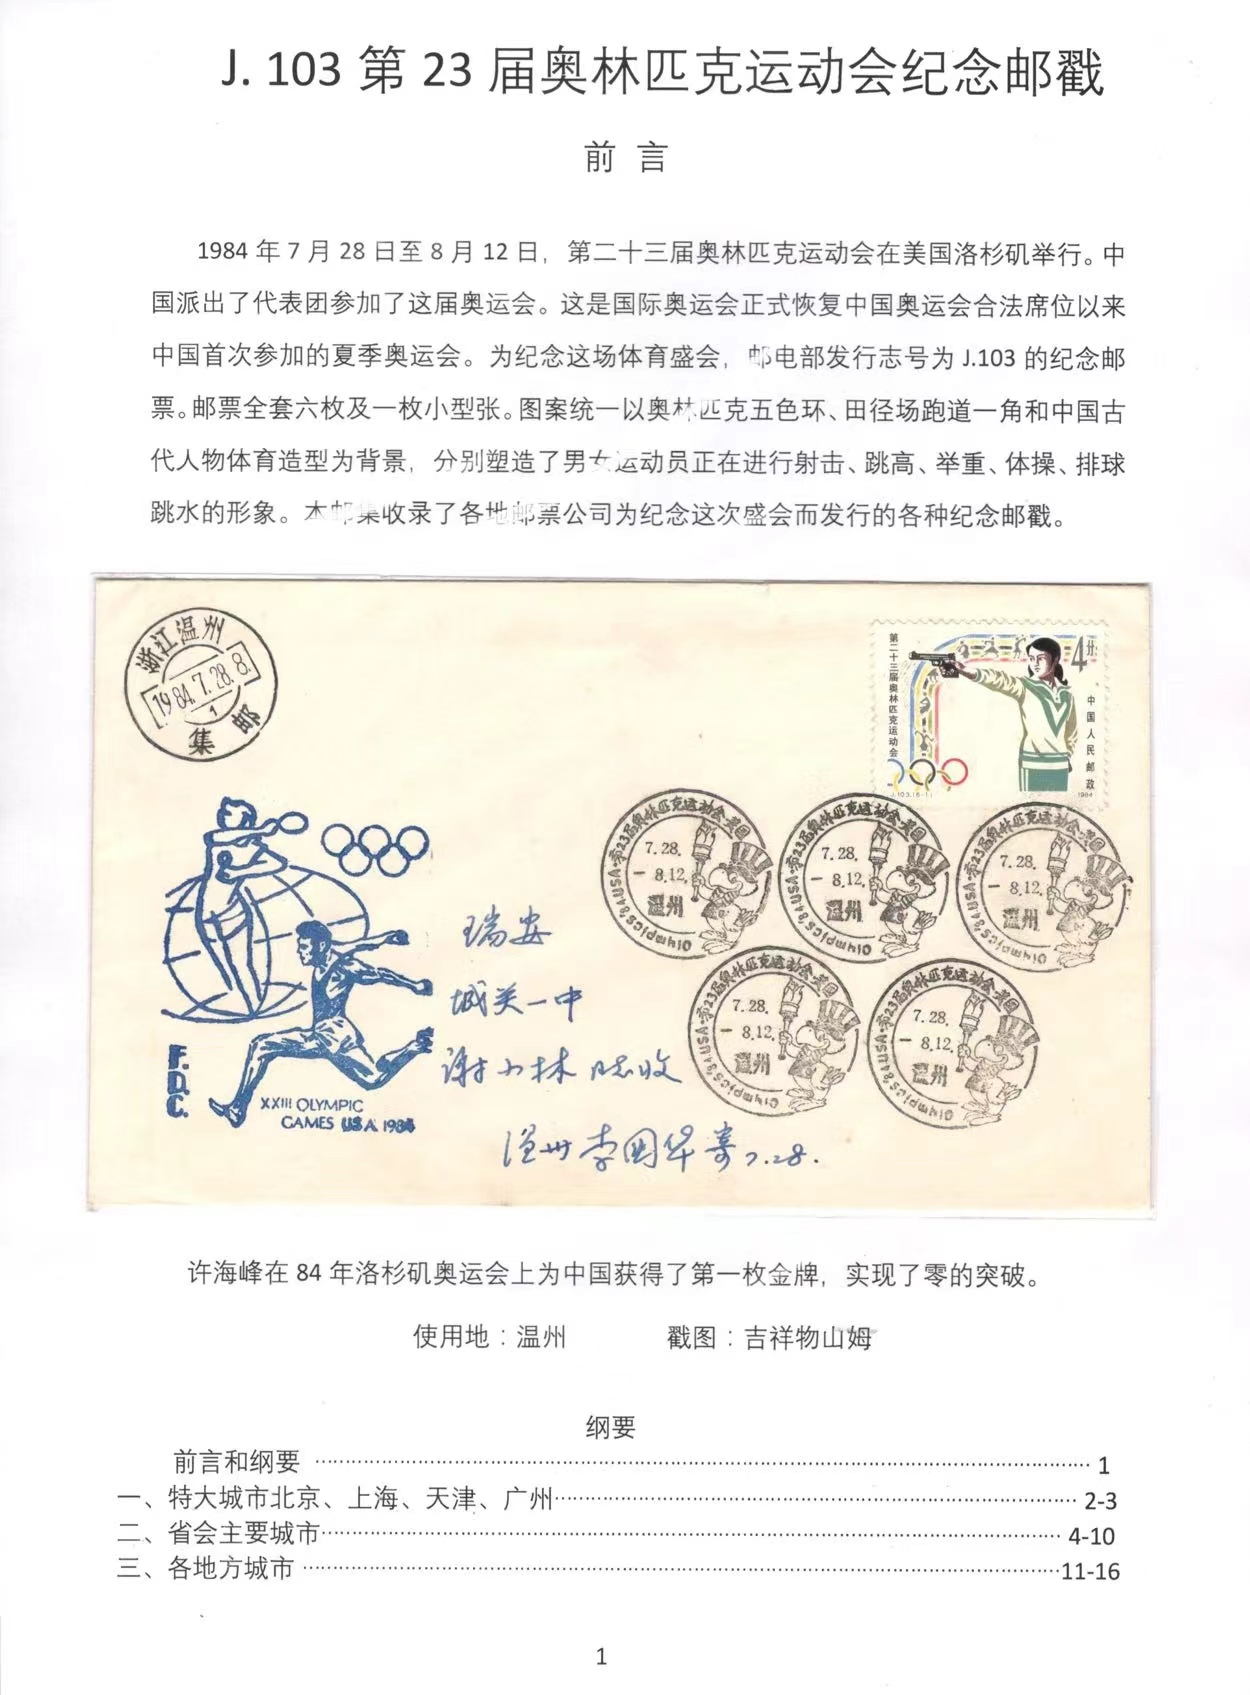 J. 103 第 23 届奥林匹克运动会纪念邮戳
前 言
1984 年 7 月 28 日至 8 月 12 日，第二十三届奥林匹克运动会在美国洛杉矶举行。中
国派出了代表团参加了这届奥运会。这是国际奥运会正式恢复中国奥运会合法席位以来
中国首次参加的夏季奥运会。为纪念这场体育盛会，邮电部发行志号为 J.103 的纪念邮
票。邮票全套六枚及一枚小型张。图案统一以奥林匹克五色环、田径场跑道一角和中国古
代人物体育造型为背景，分别塑造了男女运动员正在进行射击、跳高、举重、体操、排球
跳水的形象。本邮集收录了各地邮票公司为纪念这次盛会而发行的各种纪念邮戳。
浙江温州
1984.7.28.8.
1
集邮
第二十三届奥林匹克运动会
4分
中国人民邮政
J.103.(6-1)
1984
第23届奥林匹克运动会·美国
7.28.
- 8.12.
温州
Olympics'84USA
第23届奥林匹克运动会·美国
7.28.
- 8.12.
温州
Olympics'84USA
第23届奥林匹克运动会·美国
7.28.
- 8.12.
温州
Olympics'84USA
第23届奥林匹克运动会·美国
7.28.
- 8.12.
温州
Olympics'84USA
第23届奥林匹克运动会·美国
7.28.
- 8.12.
温州
Olympics'84USA
瑞安
城关一中
谢小林 同志收
温州李国华寄 7.28.
F.D.C.
XXIII OLYMPIC
GAMES USA 1984
许海峰在 84 年洛杉矶奥运会上为中国获得了第一枚金牌，实现了零的突破。
使用地：温州 戳图：吉祥物山姆
纲要
前言和纲要 ………………………… 1
一、特大城市北京、上海、天津、广州………………………… 2-3
二、省会主要城市………………………… 4-10
三、各地方城市 …………………………11-16
1